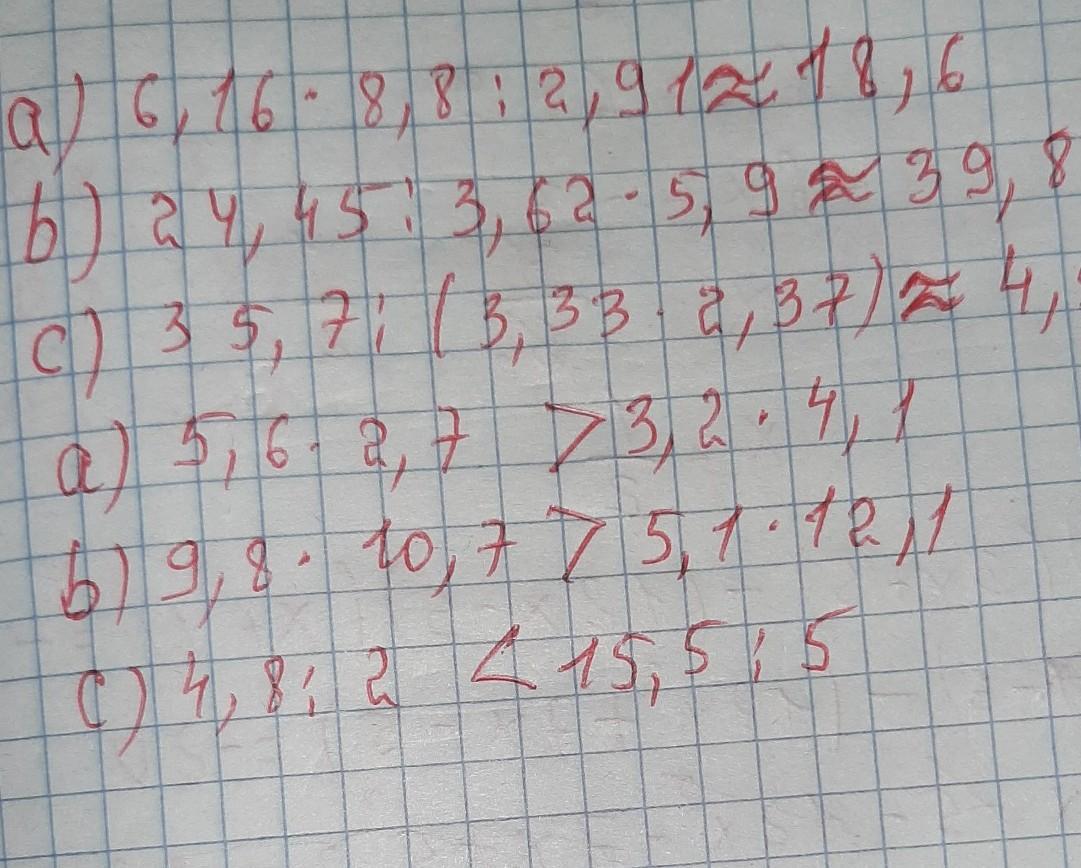 a) 6,16 · 8,8 : 2,91 ≈ 18,6
b) 24,45 : 3,62 · 5,9 ≈ 39,8
c) 35,7 : (3,33 · 2,37) ≈ 4,
a) 5,6 · 2,7 > 3,2 · 4,1
b) 9,8 · 10,7 > 5,1 · 12,1
c) 4,8 : 2 < 15,5 : 5